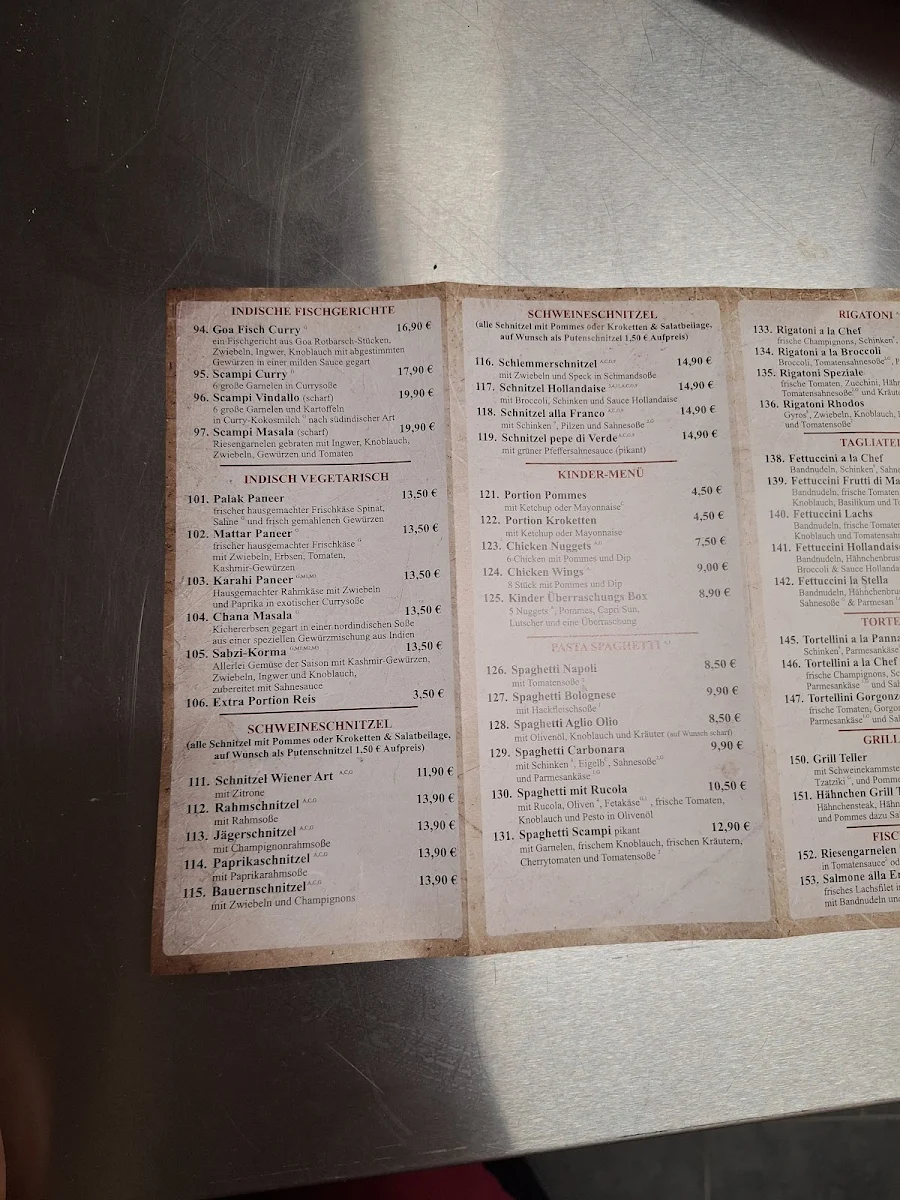 INDISCHE FISCHGERICHTE
94. Goa Fisch Curry G 16,90 €
ein Fischgericht aus Goa Rotbarsch-Stücken,
Zwiebeln, Ingwer, Knoblauch mit abgestimmten
Gewürzen in einer milden Sauce gegart
95. Scampi Curry G 17,90 €
6 große Garnelen in Currysoße
96. Scampi Vindallo (scharf) 19,90 €
6 große Garnelen und Kartoffeln
in Curry-Kokosmilch G nach südindischer Art
97. Scampi Masala (scharf) 19,90 €
Riesengarnelen gebraten mit Ingwer, Knoblauch,
Zwiebeln, Gewürzen und Tomaten
INDISCH VEGETARISCH
101. Palak Paneer 13,50 €
frischer hausgemachter Frischkäse Spinat,
Sahne G und frisch gemahlenen Gewürzen
102. Mattar Paneer G 13,50 €
frischer hausgemachter Frischkäse G
mit Zwiebeln, Erbsen, Tomaten,
Kashmir-Gewürzen
103. Karahi Paneer 13,50 €
Hausgemachter Rahmkäse mit Zwiebeln
und Paprika in exotischer Currysoße
104. Chana Masala G 13,50 €
Kichererbsen gegart in einer nordindischen Soße
aus einer speziellen Gewürzmischung aus Indien
105. Sabzi-Korma 13,50 €
Allerlei Gemüse der Saison mit Kashmir-Gewürzen,
Zwiebeln, Ingwer und Knoblauch,
zubereitet mit Sahnesauce
106. Extra Portion Reis 3,50 €
SCHWEINESCHNITZEL
(alle Schnitzel mit Pommes oder Kroketten & Salatbeilage,
auf Wunsch als Putenschnitzel 1,50 € Aufpreis)
111. Schnitzel Wiener Art A,C,G 11,90 €
mit Zitrone
112. Rahmschnitzel A,C,G 13,90 €
mit Rahmsoße
113. Jägerschnitzel A,C,G 13,90 €
mit Champignonrahmsoße
114. Paprikaschnitzel A,C,G 13,90 €
mit Paprikarahmsoße
115. Bauernschnitzel A,C,G 13,90 €
mit Zwiebeln und Champignons
SCHWEINESCHNITZEL
(alle Schnitzel mit Pommes oder Kroketten & Salatbeilage,
auf Wunsch als Putenschnitzel 1,50 € Aufpreis)
116. Schlemmerschnitzel 14,90 €
mit Zwiebeln und Speck in Schmandsoße
117. Schnitzel Hollandaise 14,90 €
mit Broccoli, Schinken und Sauce Hollandaise
118. Schnitzel alla Franco 14,90 €
mit Schinken, Pilzen und Sahnesoße
119. Schnitzel pepe di Verde 14,90 €
mit grüner Pfeffersahnesauce (pikant)
KINDER-MENÜ
121. Portion Pommes 4,50 €
mit Ketchup oder Mayonnaise
122. Portion Kroketten 4,50 €
mit Ketchup oder Mayonnaise
123. Chicken Nuggets 7,50 €
6 Chicken mit Pommes und Dip
124. Chicken Wings 9,00 €
8 Stück mit Pommes und Dip
125. Kinder Überraschungs Box 8,90 €
5 Nuggets, Pommes, Capri Sun,
Lutscher und eine Überraschung
PASTA SPAGHETTI
126. Spaghetti Napoli 8,50 €
mit Tomatensoße
127. Spaghetti Bolognese 9,90 €
mit Hackfleischsoße
128. Spaghetti Aglio Olio 8,50 €
mit Olivenöl, Knoblauch und Kräuter (auf Wunsch scharf)
129. Spaghetti Carbonara 9,90 €
mit Schinken, Eigelb, Sahnesoße
und Parmesankäse
130. Spaghetti mit Rucola 10,50 €
mit Rucola, Oliven, Fetakäse, frische Tomaten,
Knoblauch und Pesto in Olivenöl
131. Spaghetti Scampi pikant 12,90 €
mit Garnelen, frischem Knoblauch, frischen Kräutern,
Cherrytomaten und Tomatensoße
RIGATONI
133. Rigatoni a la Chef
frische Champignons, Schinken,
134. Rigatoni a la Broccoli
Broccoli, Tomatensahnesoße
135. Rigatoni Speziale
frische Tomaten, Zucchini, Hähn
Tomatensahnesoße und Kräute
136. Rigatoni Rhodos
Gyros, Zwiebeln, Knoblauch,
und Tomatensoße
TAGLIATEL
138. Fettuccini a la Chef
Bandnudeln, Schinken, Sahn
139. Fettuccini Frutti di Ma
Bandnudeln, frische Tomaten
Knoblauch, Basilikum und T
140. Fettuccini Lachs
Bandnudeln, frische Tomaten
Knoblauch und Tomatensahn
141. Fettuccini Hollandaise
Bandnudeln, Hähnchenbrus
Broccoli & Sauce Hollanda
142. Fettuccini la Stella
Bandnudeln, Hähnchenbrus
Sahnesoße & Parmesan
TORTE
145. Tortellini a la Panna
Schinken, Parmesankäse
146. Tortellini a la Chef
frische Champignons, Sc
Parmesankäse und Sal
147. Tortellini Gorgonz
frische Tomaten, Gorgon
Parmesankäse und Sal
GRILL
150. Grill Teller
mit Schweinekammste
Tzatziki, und Pomme
151. Hähnchen Grill T
Hähnchensteak, Hähn
und Pommes dazu Sa
FISC
152. Riesengarnelen
in Tomatensauce od
153. Salmone alla Er
frisches Lachsfilet i
mit Bandnudeln un